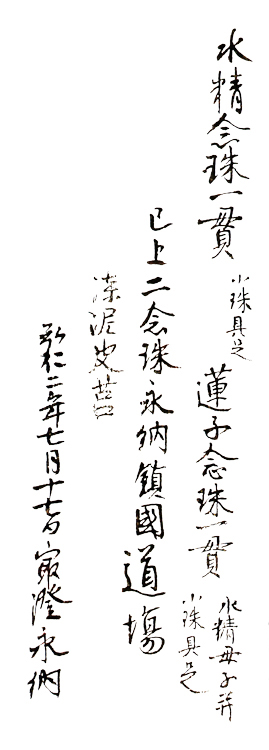 水精念珠一貫 小珠具足
蓮子念珠一貫 水精母子并
小珠具足
已上二念珠永納鎮國道場
漆泥皮莒
弘仁二年七月十七日最澄永納